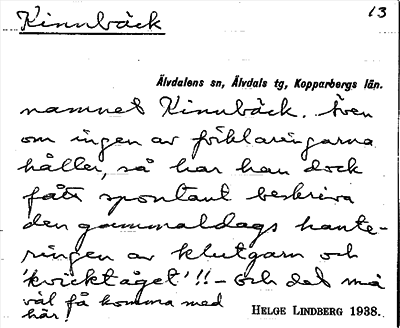 Kinnbäck
13
Älvdalens sn, Älvdals tg, Kopparbergs län.
namnet Kinnbäck. Även
om ingen av förklaringarna
håller, så har han dock
fått spontant beskriva
den gammaldags hante-
ringen av klutgarn och
'kvicktåget'!! – Och det må
väl få komma med
här!
HELGE LINDBERG 1938.